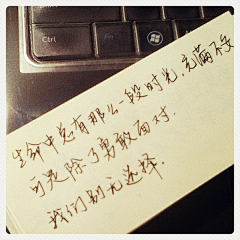 Ctrl
生命中总有那么一段时光,充满不安
可是除了勇敢面对,
我们别无选择.